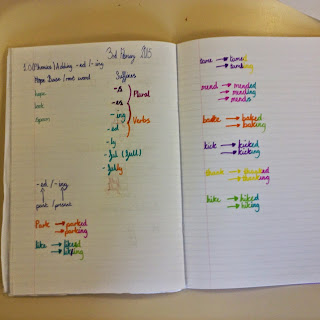 3rd February 2015
1.0 Phonics) Adding -ed / -ing
Hope Base / root word
Suffixes
hope
-s
Plural
look
-es
-ing
Verbs
-ed
-ly
-ful (full)
-fully
-ed / -ing
Park → parked
→ parking
like → liked
→ liking
→ tamed
mend → mended
→ mending
→ mends
bake → baked
→ baking
kick → kicked
→ kicking
thank → thanked
→ thanking
hike → hiked
→ hiking